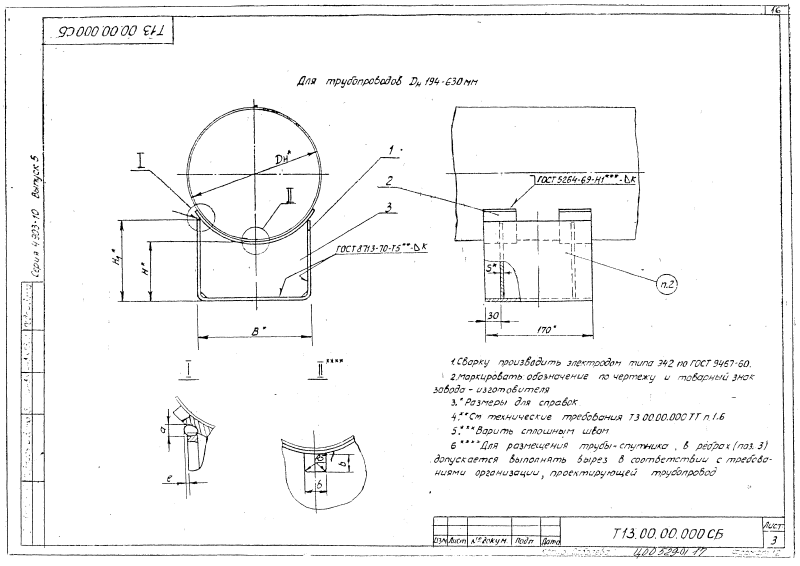 16
Т13 00.00.000 СБ
Серия 4.903-10 Выпуск 5
Для трубопроводов Dн 194-630 мм
I
Dн*
II
1
2
3
ГОСТ 5264-69-Н1***-⊿К
ГОСТ 8713-70-Т5**-⊿К
H₁*
H*
B*
S*
30
170*
п.2
I
II****
a
e
b
б
1. Сварку производить электродом типа Э42 по ГОСТ 9467-60.
2. Маркировать обозначение по чертежу и товарный знак
завода-изготовителя
3.* Размеры для справок
4.** См технические требования Т3 00.00.000 ТТ п.1.6
5.*** Варить сплошным швом
6 **** Для размещения трубы-спутника, в ребрах (поз. 3)
допускается выполнять вырез в соответствии с требова-
ниями организации, проектирующей трубопровод
Изм Лист № докум. Подп Дата
Т13.00.00.000 СБ
Лист
3
ЦОО 529-01 17